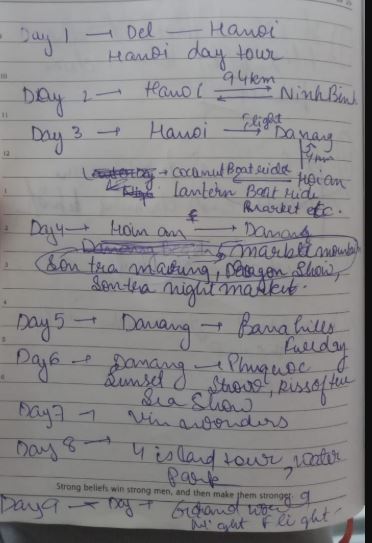 Day 1 → Del — Hanoi
Hanoi day tour
Day 2 → Hanoi 94km NinhBinh
Day 3 → Hanoi flight → Danang
→ coconut Boat ride Hoian
Lantern Boat ride
Market etc.
Day 4 → Hoin an → Danang
marble mountain
Son tra , Dragon Show,
Sontra night market.
Day 5 → Danang → Bana hills
Fullday
Day 6 → Danang → Phuquoc
Sunset Show, Kiss of the
Sea Show
Day 7 → Vinwonders
Day 8 → 4 island tour, water
Park
Strong beliefs win strong men, and then make them stronger
Day 9 → Day → Grand world
Night Flight.